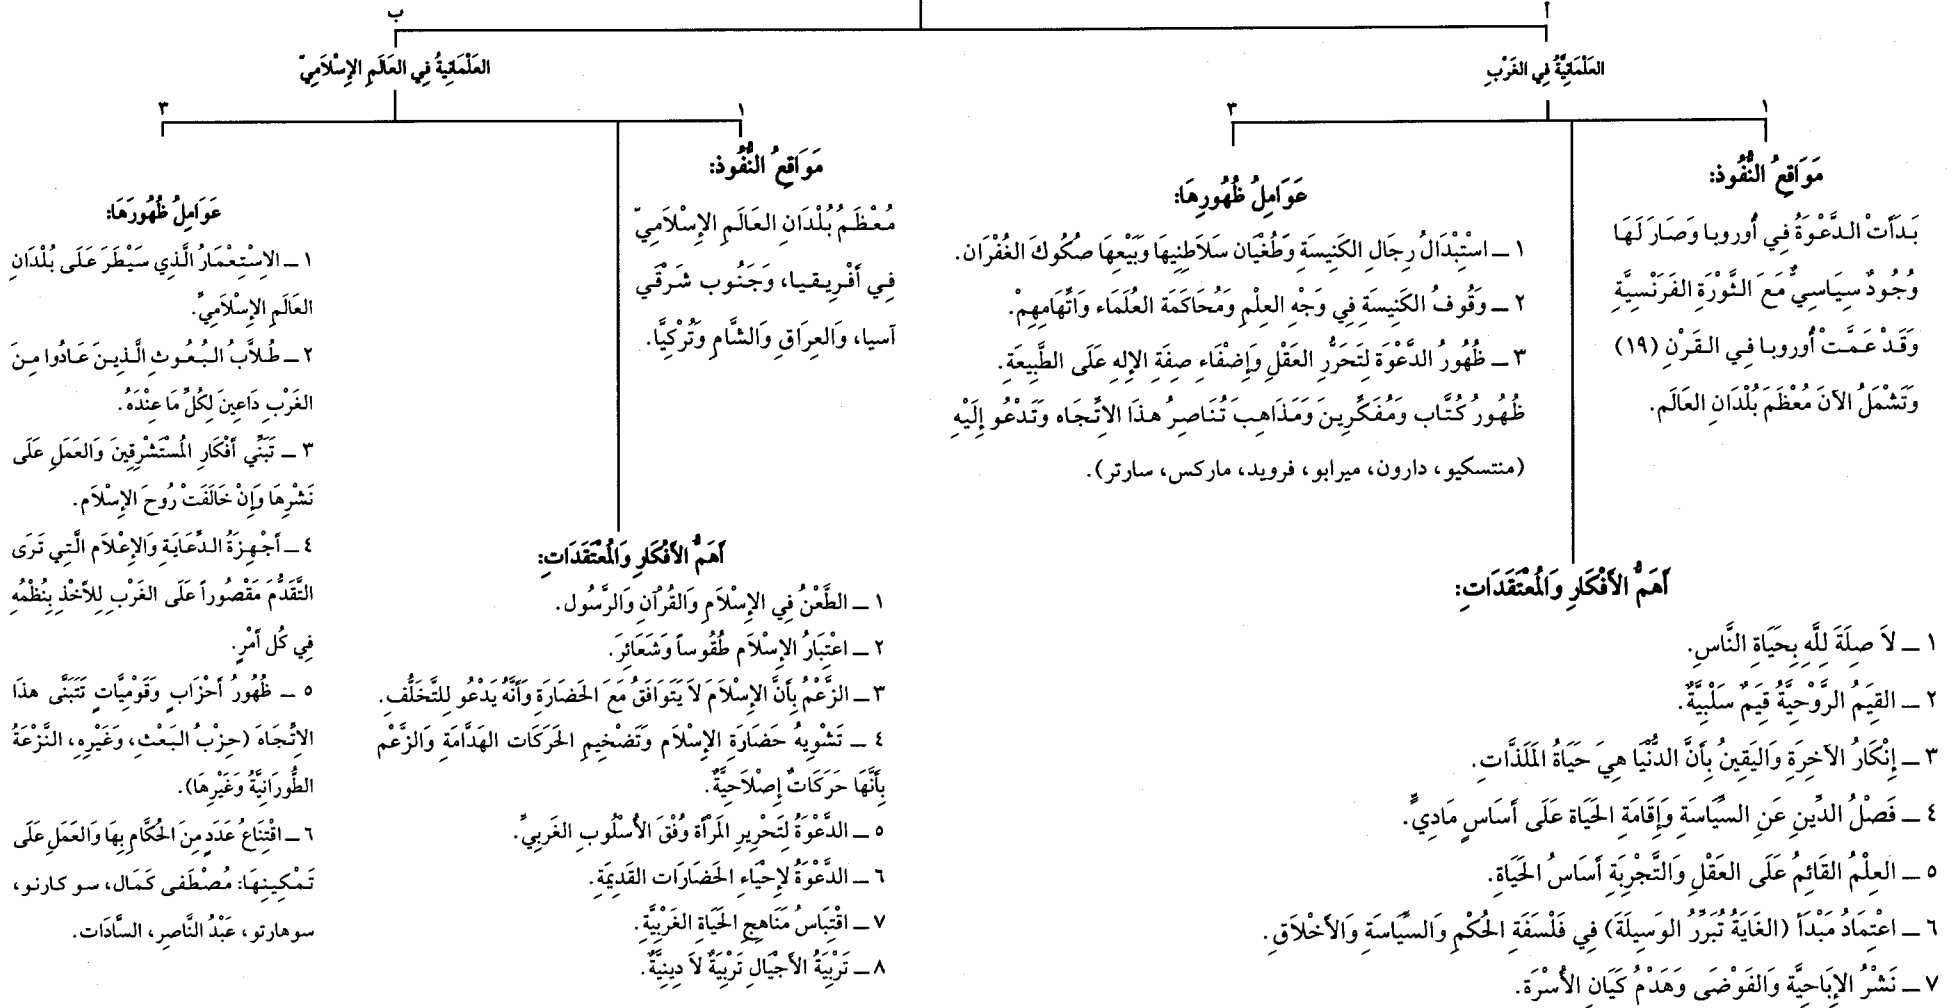 أ
العَلْمَانِيَّةُ فِي الغَرْبِ
١
مَوَاقِعُ النُّفُوذ:
بَدَأَتْ الدَّعْوَةُ فِي أُوروبا وَصَارَ لَهَا
وُجُودٌ سِيَاسِيٌّ مَعَ الثَّوْرَةِ الفَرَنْسِيَّةِ
وَقَدْ عَمَّتْ أُوروبا فِي القَرْنِ (١٩)
وَتَشْمَلُ الآنَ مُعْظَمَ بُلْدَانِ العَالَم.
٣
عَوَامِلُ ظُهُورِهَا:
١ ــ اسْتِبْدَالُ رِجَالِ الكَنِيسَةِ وَطُغْيَان سَلاَطِنِيهَا وَبَيْعِهَا صكُوكَ الغُفْرَان.
٢ ــ وَقُوفُ الكَنِيسَةِ فِي وَجْهِ العِلْمِ وَمُحَاكَمَة العُلَمَاء وَاتِّهَامِهِمْ.
٣ ــ ظُهُورُ الدَّعْوَة لِتَحَرُّرِ العَقْلِ وَإِضْفَاءِ صِفَةِ الإِلهِ عَلَى الطَّبِيعَةِ.
ظُهُورُ كُتَّاب وَمُفَكِّرِينَ وَمَذَاهِبَ تُنَاصِرُ هذَا الاتِّجَاه وَتَدْعُو إِلَيْهِ
(منتسكيو، دارون، ميرابو، فرويد، ماركس، سارتر).
أَهَمُّ الأَفْكَارِ وَالمُعْتَقَدَاتِ:
١ ــ لاَ صِلَةَ لِلَّهِ بِحَيَاةِ النَّاسِ.
٢ ــ القِيَمُ الرَّوْحِيَّةُ قِيَمٌ سَلْبِيَّةٌ.
٣ ــ إِنْكَارُ الآخِرَةِ وَاليَقِينُ بِأَنَّ الدُّنْيَا هِيَ حَيَاةُ المَلَذَّاتِ.
٤ ــ فَصْلُ الدِّينِ عَنِ السِّيَاسَةِ وَإِقَامَةِ الحَيَاة عَلَى أَسَاسٍ مَادِيٍّ.
٥ ــ العِلْمُ القَائِمُ عَلَى العَقْلِ وَالتَّجْرِبَةِ أَسَاسُ الحَيَاة.
٦ ــ اعْتِمَادُ مَبْدَأ (الغَايَةُ تُبَرِّرُ الوَسِيلَةَ) فِي فَلْسَفَةِ الحُكْمِ وَالسِّيَاسَةِ وَالأَخْلاَقِ.
٧ ــ نَشْرُ الإِبَاحِيَّة وَالفَوْضَى وَهَدْمُ كَيَانِ الأُسْرَة.
ب
العَلْمَانِيةُ فِي العَالَمِ الإِسْلاَمِيّ
١
مَوَاقِعُ النُّفُوذ:
مُعْظَمُ بُلْدَانِ العَالَمِ الإِسْلاَمِيّ
فِي أَفْرِيقيا، وَجَنُوب شَرْقَي
آسيا، وَالعِرَاقِ وَالشَّامِ وَتُرْكِيَّا.
أَهَمُّ الأَفْكَارِ وَالمُعْتَقَدَاتِ:
١ ــ الطَّعْنُ فِي الإِسْلاَمِ وَالقُرْآنِ وَالرَّسُول.
٢ ــ اعْتِبَارُ الإِسْلاَم طُقُوساً وَشَعَائِرَ.
٣ ــ الزَّعْمُ بِأَنَّ الإِسْلاَمَ لاَ يَتَوَافَقُ مَعَ الحَضَارَةِ وَأَنَّهُ يَدْعُو لِلتَّخَلُّف.
٤ ــ تَشْوِيهُ حَضَارَةِ الإِسْلاَم وَتَضْخِيمِ الحَرَكَات الهَدَّامَةِ وَالزَّعْم
بِأَنَّهَا حَرَكَاتٌ إِصْلاَحِيَّةٌ.
٥ ــ الدَّعْوَةُ لِتَحْرِيرِ المَرْأَة وُفْقَ الأُسْلُوب الغَربيِّ.
٦ ــ الدَّعْوَةُ لإِحْيَاءِ الحَضَارَات القَدِيمَةِ.
٧ ــ اقْتِبَاسُ مَنَاهِجِ الحَيَاةِ الغَرْبِيَّةِ.
٨ ــ تَرْبِيَةُ الأَجْيَالِ تَرْبِيَةٌ لاَ دِينِيَّةٌ.
٣
عَوَامِلُ ظُهُورَهَا:
١ ــ الاِسْتِعْمَارُ الَّذِي سَيْطَرَ عَلَى بُلْدَانِ
العَالَمِ الإِسْلاَمِيِّ.
٢ ــ طُلاَّبُ البُعُوثِ الَّذِينَ عَادُوا مِنَ
الغَرْبِ دَاعِينَ لِكُلِّ مَا عِنْدَهُ.
٣ ــ تَبَنِّي أَفْكَارِ المُسْتَشْرِقِينَ وَالعَمَلِ عَلَى
نَشْرِهَا وَإِنْ خَالَفَتْ رُوحَ الإِسْلاَم.
٤ ــ أَجْهِزَةُ الدِّعَايَةِ وَالإِعْلاَم الَّتِي تَرَى
التَّقَدُّمَ مَقْصُوراً عَلَى الغَرْبِ لِلأَخْذِ بِنُظْمُهِ
فِي كُل أَمْرٍ.
٥ ــ ظُهُورُ أَحْزَابٍ وَقَوْمِيَّاتٍ تَتَبَنَّى هذَا
الاتِّجَاهَ (حِزْبُ البَعْث، وَغَيْرِهِ، النَّزْعَةُ
الطُّورَانِيَّةُ وَغَيْرِهَا).
٦ ــ اقْتِنَاعُ عَدَدٍ مِنَ الحُكَّامِ بِهَا وَالعَمَلِ عَلَى
تَمْكِينِهَا: مُصْطَفى كَمَال، سو كارنو،
سوهارتو، عَبْدُ النَّاصِرِ، السَّادَات.